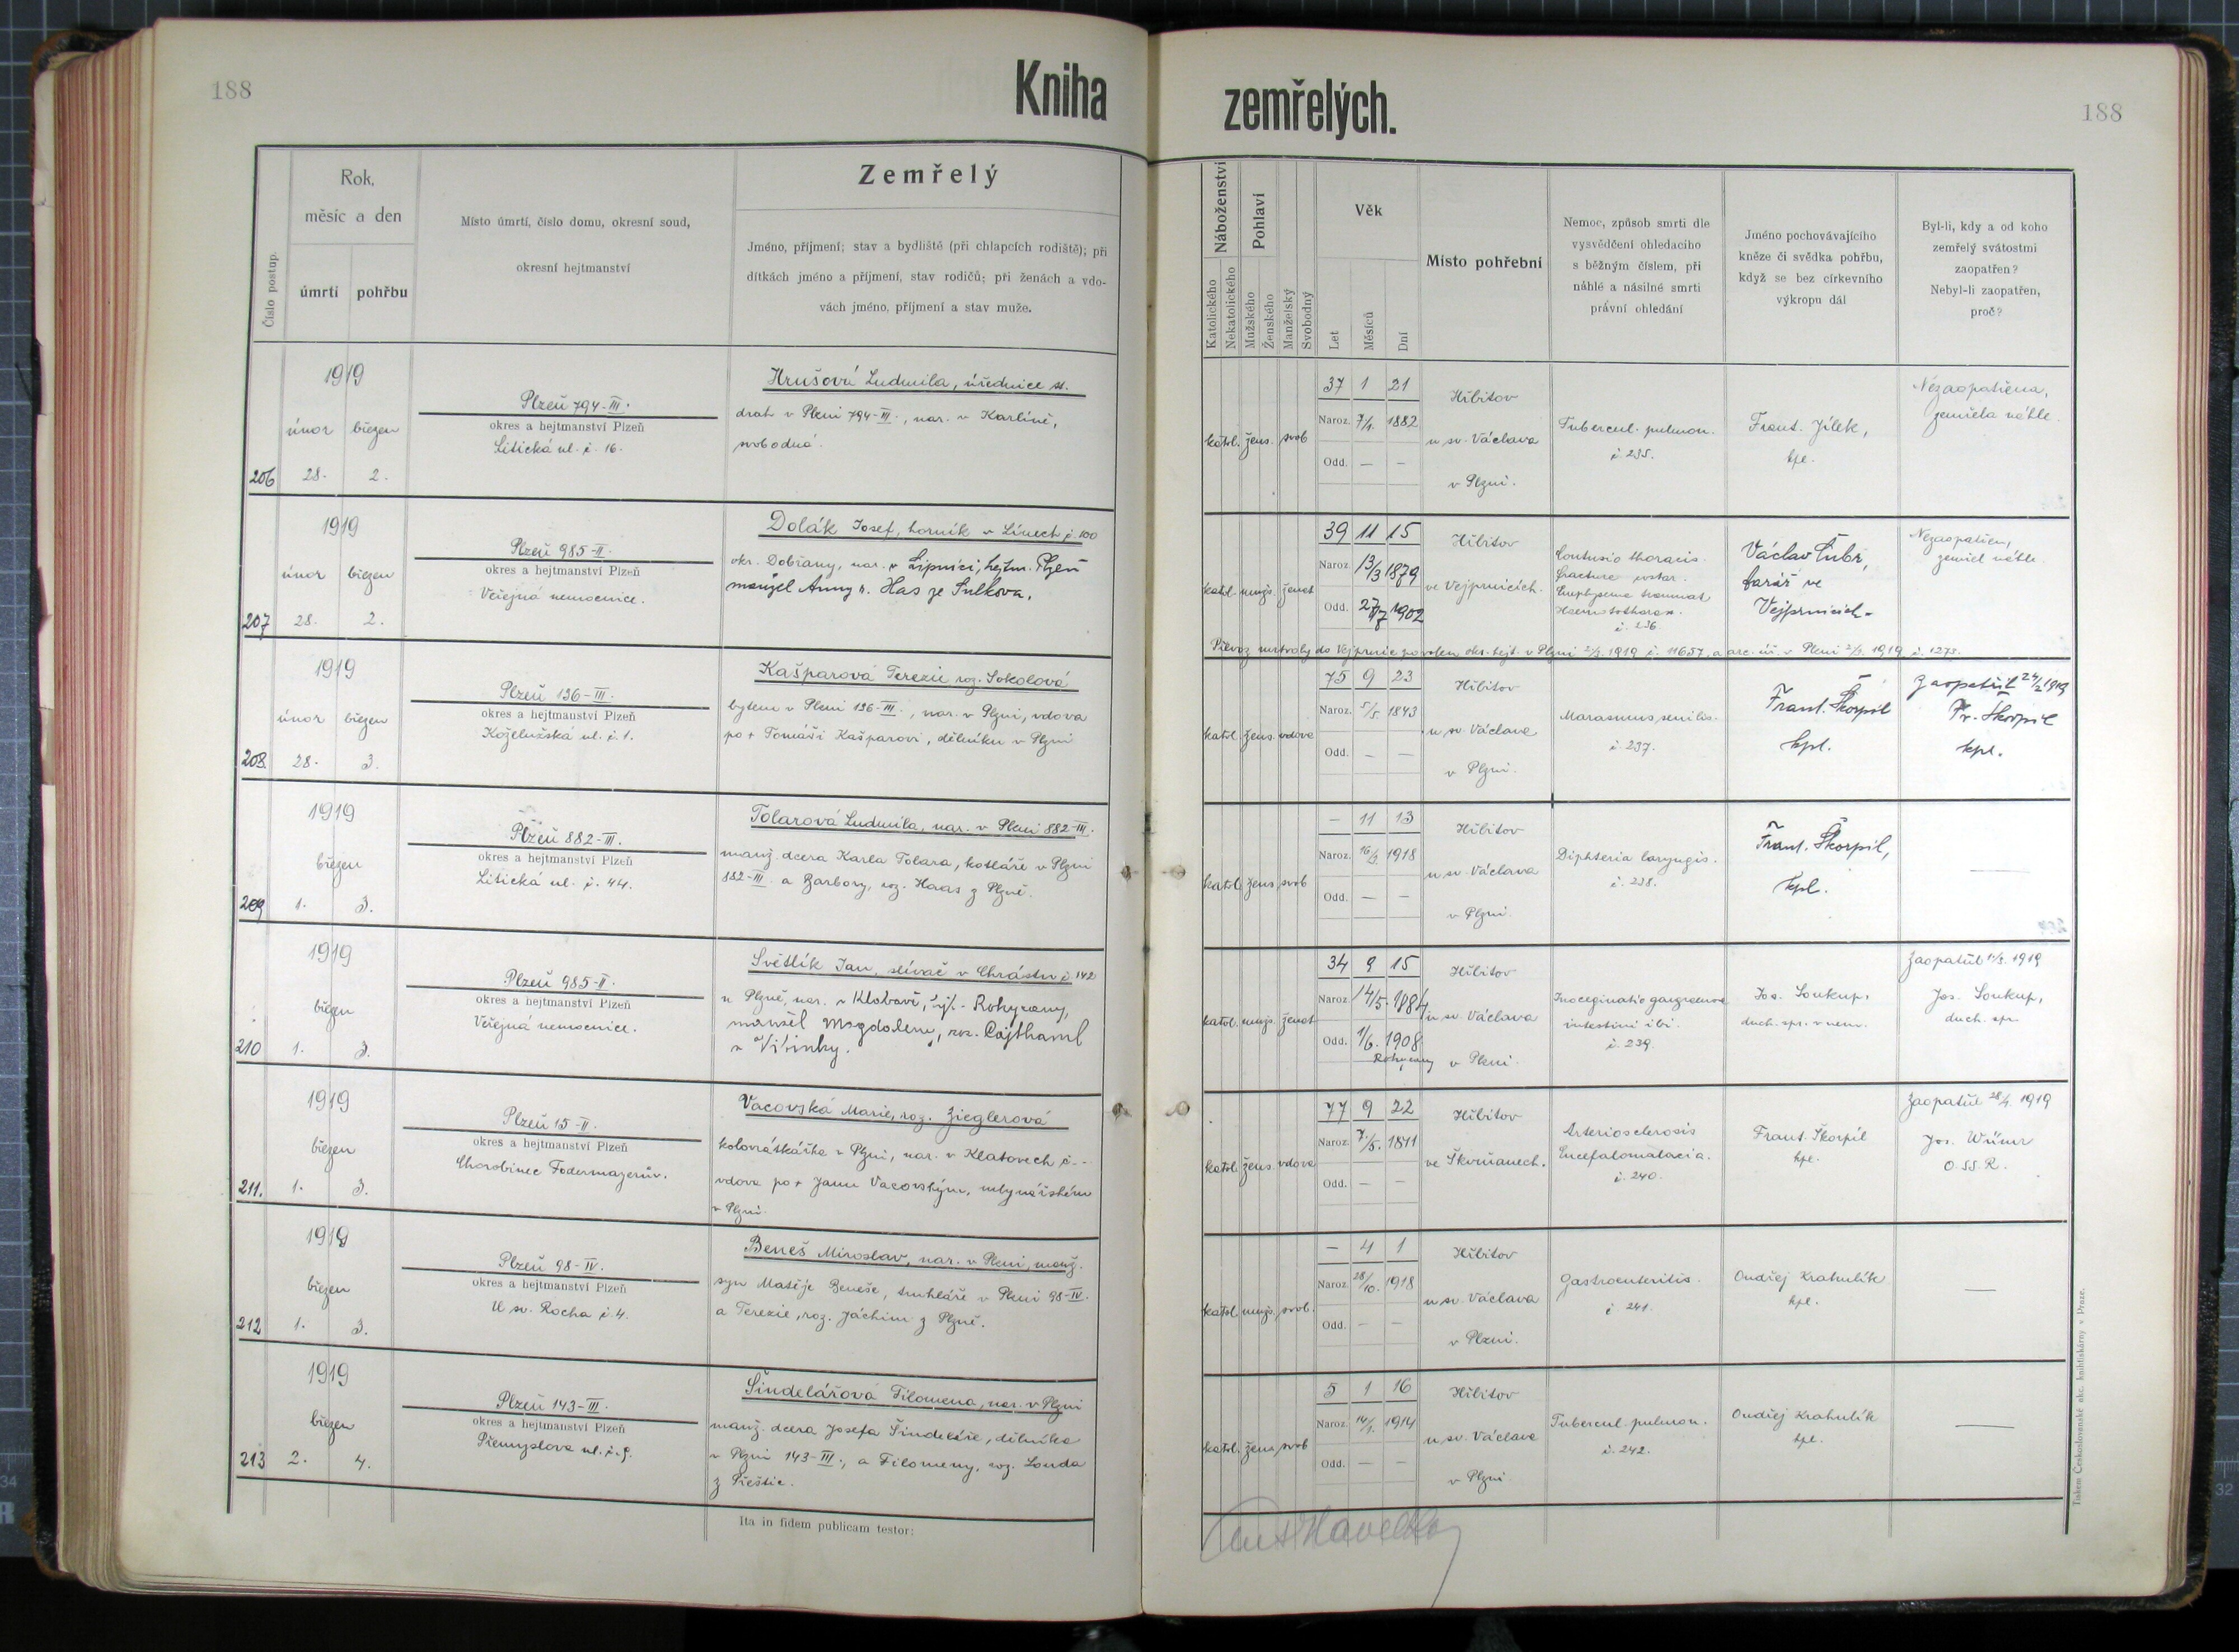 188
Kniha
zemřelých.
188
Číslo postup.
Rok,
měsíc a den
úmrtí
pohřbu
Místo úmrtí, číslo domu, okresní soud,
okresní hejtmanství
Zemřelý
Jméno, příjmení; stav a bydliště (při chlapcích rodiště); při
dítkách jméno a příjmení, stav rodičů; při ženách a vdo-
vách jméno, příjmení a stav muže.
Náboženství
Katolického
Nekatolického
Pohlaví
Mužského
Ženského
Manželský
Svobodný
Věk
Let
Měsíců
Dní
Místo pohřební
Nemoc, způsob smrti dle
vysvědčení ohledacího
s běžným číslem, při
náhlé a násilné smrti
právní ohledání
Jméno pochovávajícího
kněze či svědka pohřbu,
když se bez církevního
výkropu dál
Byl-li, kdy a od koho
zemřelý svátostmi
zaopatřen?
Nebyl-li zaopatřen,
proč?
206
1919
únor březen
28. 2.
Plzeň 794-III.
okres a hejtmanství Plzeň
Litická ul. č. 16.
Hrušová Ludmila, úřednice st.
drah v Plzni 794-III., nar. v Karlíně,
svobodná.
katol. žens. svob
37 1 21
Naroz. 7/1. 1882
Odd. — —
Hřbitov
u sv. Václava
v Plzni.
Tubercul. pulmon.
č. 235.
Frant. Jílek,
kpl.
Nezaopatřena,
zemřela náhle.
207
1919
únor březen
28. 2.
Plzeň 985-II.
okres a hejtmanství Plzeň
Veřejná nemocnice.
Dolák Josef, horník v Línech č. 100
okr. Dobřany, nar. v Lipnici, hejtm. Plzeň
manžel Anny r. Has ze Sulkova.
katol. mužs. ženat
39 11 15
Naroz. 13/3 1879
Odd. 27/7 1902
Hřbitov
ve Vejprnicích.
Contusio thoracis.
fracture costar.
Emphysema traumat
Haemotothorax.
č. 236.
Václav Šubr,
farář ve
Vejprnicích.
Nezaopatřen,
zemřel náhle.
Převoz mrtvoly do Vejprnic povolen okr. hejt. v Plzni 2/3. 1919 č. 11657, a arc. úř. v Plzni 2/3. 1919 č. 1273.
208.
1919
únor březen
28. 3.
Plzeň 136-III.
okres a hejtmanství Plzeň
Koželužská ul. č. 1.
Kašparová Terezie roz. Sokolová
bytem v Plzni 136-III., nar. v Plzni, vdova
po + Tomáši Kašparovi, dělníku v Plzni
katol. žens. vdova
75 9 23
Naroz. 5/5. 1843
Odd. — —
Hřbitov
u sv. Václava
v Plzni.
Marasmus senilis.
č. 237.
Frant. Škorpil
kpl.
Zaopatřil 24/2 1919
Fr. Škorpil
kpl.
209
1919
březen
1. 3.
Plzeň 882-III.
okres a hejtmanství Plzeň
Litická ul. č. 44.
Tolarová Ludmila, nar. v Plzni 882-III.
manž. dcera Karla Tolara, kotláře v Plzni
882-III. a Barbory, roz. Haas z Plzně.
katol. žens. svob
— 11 13
Naroz. 16/3. 1918
Odd. — —
Hřbitov
u sv. Václava
v Plzni.
Diphteria laryngis.
č. 238.
Frant. Škorpil,
kpl.
—
210
1919
březen
1. 3.
Plzeň 985-II.
okres a hejtmanství Plzeň
Veřejná nemocnice.
Světlík Jan, slévač v Chrástu č. 142
u Plzně, nar. v Klabavě, hejt. Rokycany,
manžel Magdaleny, roz. Cajthaml
z Vitinky.
katol. mužs. ženat
34 9 15
Naroz. 14/5. 1884
Odd. 1/6. 1908
Rokycany
Hřbitov
u sv. Václava
v Plzni.
intestini ibi.
č. 239.
Jos. Soukup,
duch. spr. v nem.
Zaopatřil 1/3. 1919
Jos. Soukup,
duch. spr.
211.
1919
březen
1. 3.
Plzeň 15-II.
okres a hejtmanství Plzeň
Chorobinec Fodermayerův.
Vacovská Marie, roz. Zieglerová
kolovrátkářka v Plzni, nar. v Klatovech č. -
vdova po + Janu Vacovským, mlynářském
v Plzni.
katol. žens. vdova
77 9 22
Naroz. 7/5. 1841
Odd. — —
Hřbitov
ve Skvrňanech.
Arteriosclerosis
Encefalomalacia.
č. 240.
Frant. Škorpil
kpl.
Zaopatřil 28/1. 1919
Jos. Wünr
O. SS. R.
212
1919
březen
1. 3.
Plzeň 98-IV.
okres a hejtmanství Plzeň
U sv. Rocha č. 4.
Beneš Miroslav, nar. v Plzni, manž.
syn Matěje Beneše, truhláře v Plzni 98-IV.
a Terezie, roz. Jáchim z Plzně.
katol. mužs. svob.
— 4 1
Naroz. 28/10. 1918
Odd. — —
Hřbitov
u sv. Václava
v Plzni.
Gastroenteritis.
č. 241.
Ondřej Krahulík
kpl.
—
213
1919
březen
2. 4.
Plzeň 143-III.
okres a hejtmanství Plzeň
Přemyslova ul. č. 9.
Šindelářová Filomena, nar. v Plzni
manž. dcera Josefa Šindeláře, dělníka
v Plzni 143-III., a Filomeny, roz. Louda
z Přeštic.
katol. žens. svob
5 1 16
Naroz. 14/1. 1914
Odd. — —
Hřbitov
u sv. Václava
v Plzni.
Tubercul. pulmon.
č. 242.
Ondřej Krahulík
kpl.
—
Ita in fidem publicam testor:
Ant. Havelka
Tiskem Českoslovanské akc. knihtiskárny v Praze.